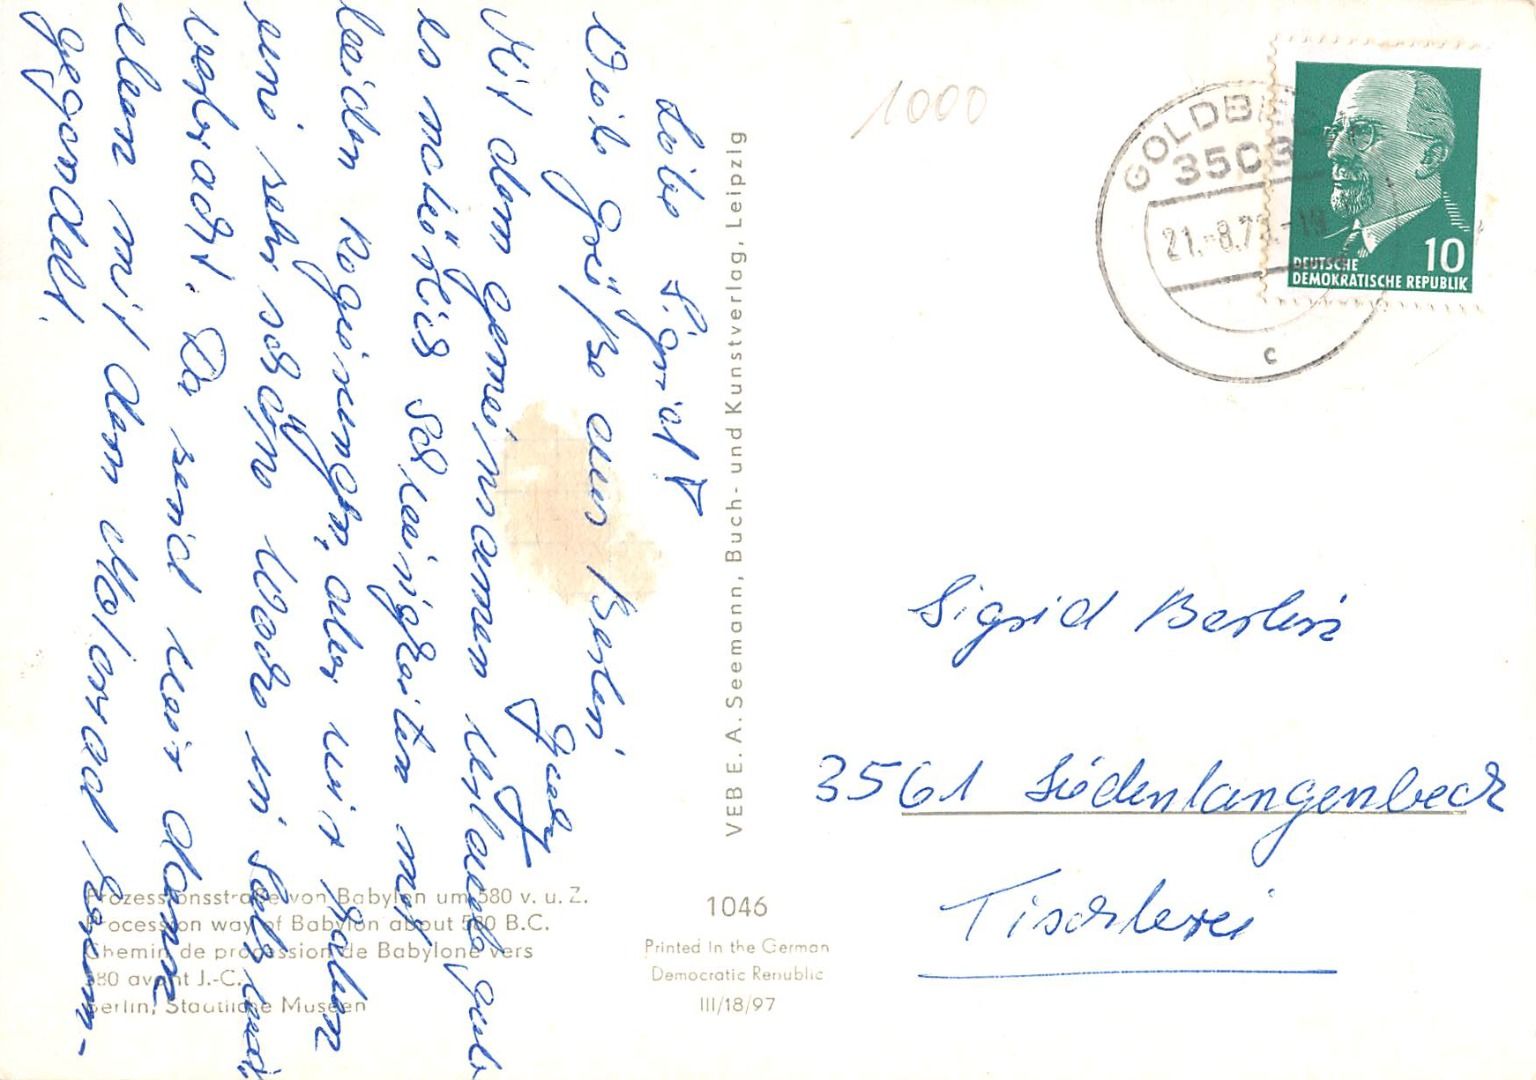 Liebe Sigrid!
Viele Grüße aus Berlin
Gaby
Mit dem gemeinsamen Urlaub gab
es natürlich Schwierigkeiten mit
beiden Regierungen, aber wir haben
eine sehr schöne Woche in
verbracht. Da sind wir dann
eben mit dem Motorrad herum-
gegondelt.
Prozessionsstraße von Babylon um 580 v. u. Z.
Procession way of Babylon about 580 B.C.
Chemin de procession de Babylone vers
580 avant J.-C.
Berlin, Staatliche Museen
VEB E. A. Seemann, Buch- und Kunstverlag, Leipzig
1046
Printed in the German
Democratic Republic
III/18/97
1000
GOLDB
3503
21.-8.7
c
10
DEUTSCHE
DEMOKRATISCHE REPUBLIK
Sigrid Berlin
3561 Südenlangenbeck
Tischlerei